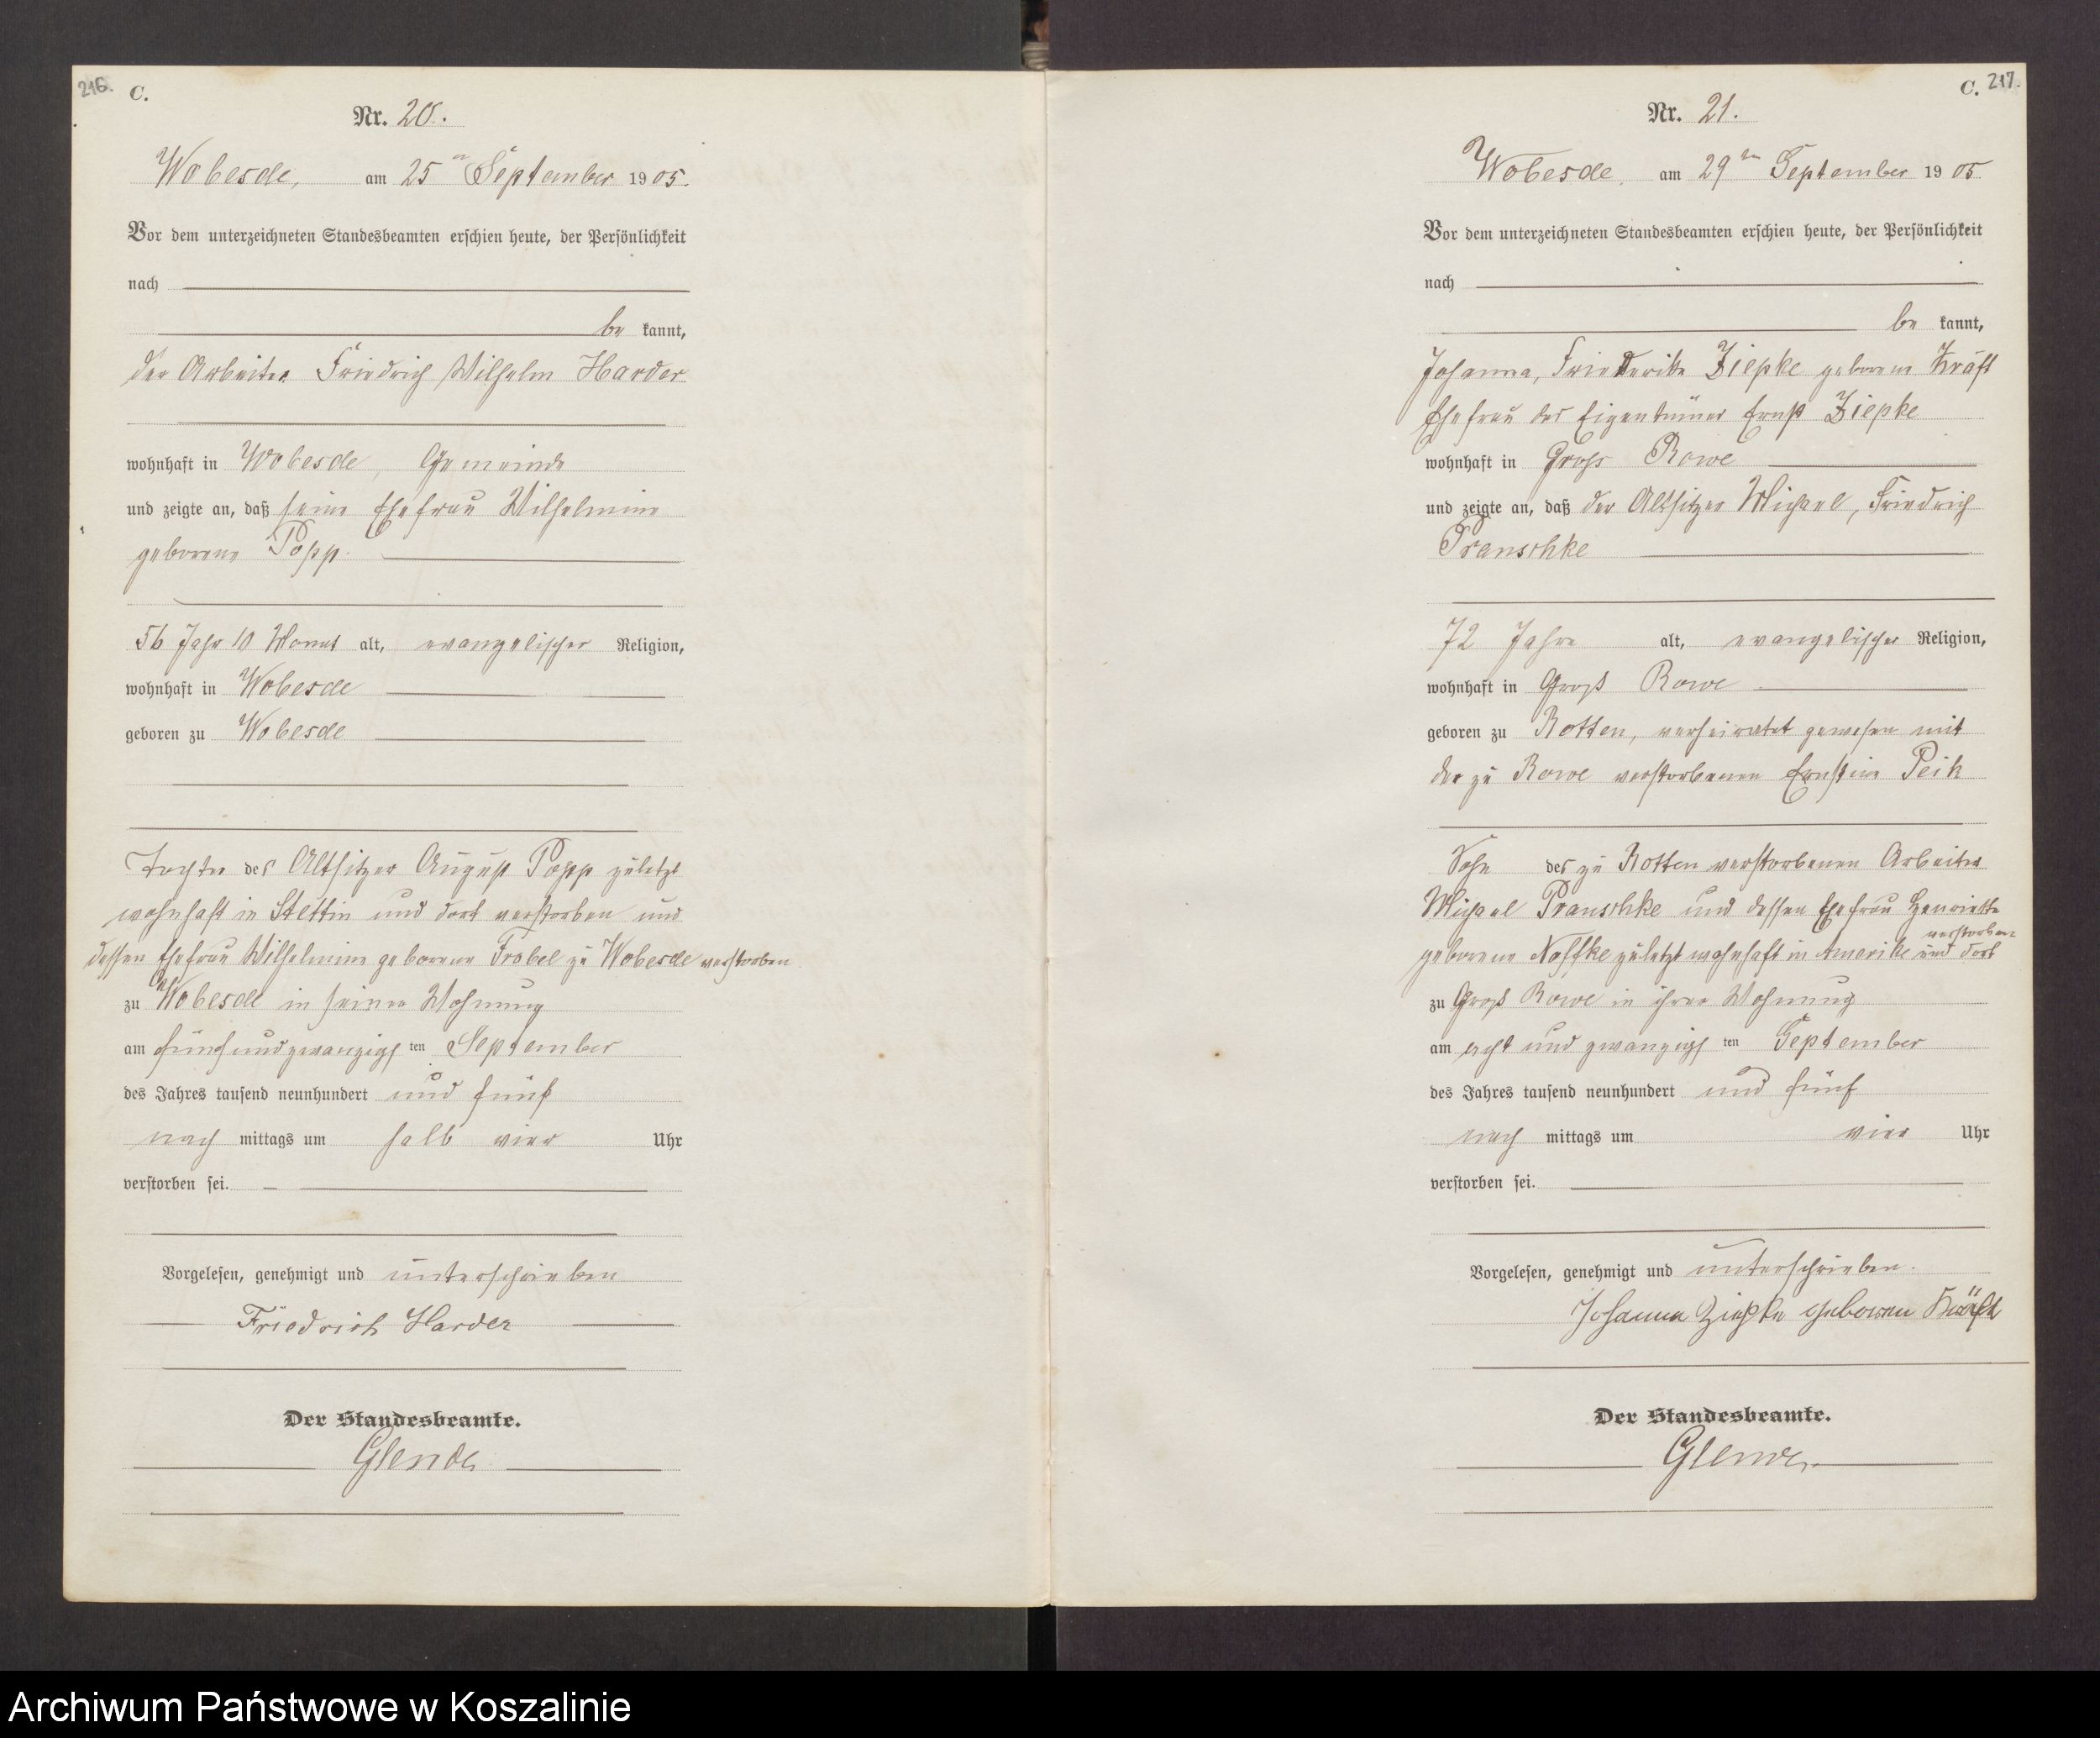 216.
C.
Nr. 20.
Wobesde, am 25ten September 1905.
Vor dem unterzeichneten Standesbeamten erschien heute, der Persönlichkeit
nach
be kannt,
der Arbeiter Friedrich Wilhelm Harder
wohnhaft in Wobesde, Gemeinde
und zeigte an, daß seine Ehefrau Wilhelmine
geborene Popp
56 Jahr 10 Monat alt, evangelischer Religion,
wohnhaft in Wobesde
geboren zu Wobesde
Tochter des Altsitzer August Popp zuletzt
wohnhaft in Stettin und dort verstorben und
dessen Ehefrau Wilhelmine geborene Frobel zu Wobesde verstorben
zu Wobesde in seiner Wohnung
am fünfundzwanzigsten September
des Jahres tausend neunhundert und fünf
nach mittags um halb vier Uhr
verstorben sei.
Vorgelesen, genehmigt und unterschrieben
Friedrich Harder
Der Standesbeamte.
Glende
C. 217.
Nr. 21.
Wobesde, am 29ten September 1905
Vor dem unterzeichneten Standesbeamten erschien heute, der Persönlichkeit
nach
be kannt,
Johanna, Friederike Ziepke geborene Kräft
Ehefrau des Eigentümer Ernst Ziepke
wohnhaft in Gross Rowe
und zeigte an, daß der Altsitzer Michael, Friedrich
Pranschke
72 Jahre alt, evangelischer Religion,
wohnhaft in Groß Rowe
geboren zu Rotten, verheiratet gewesen mit
der zu Rowe verstorbenen Ernstine Peik
Sohn des zu Rotten verstorbenen Arbeiter
Michael Pranschke und dessen Ehefrau Henriette
geborene Noffke zuletzt wohnhaft in Amerike und dort verstorben
zu Groß Rowe in ihrer Wohnung
am acht und zwanzigsten September
des Jahres tausend neunhundert und fünf
nach mittags um vier Uhr
verstorben sei.
Vorgelesen, genehmigt und unterschrieben.
Johanna Ziepke geborene Kräft
Der Standesbeamte.
Glende
Archiwum Państwowe w Koszalinie